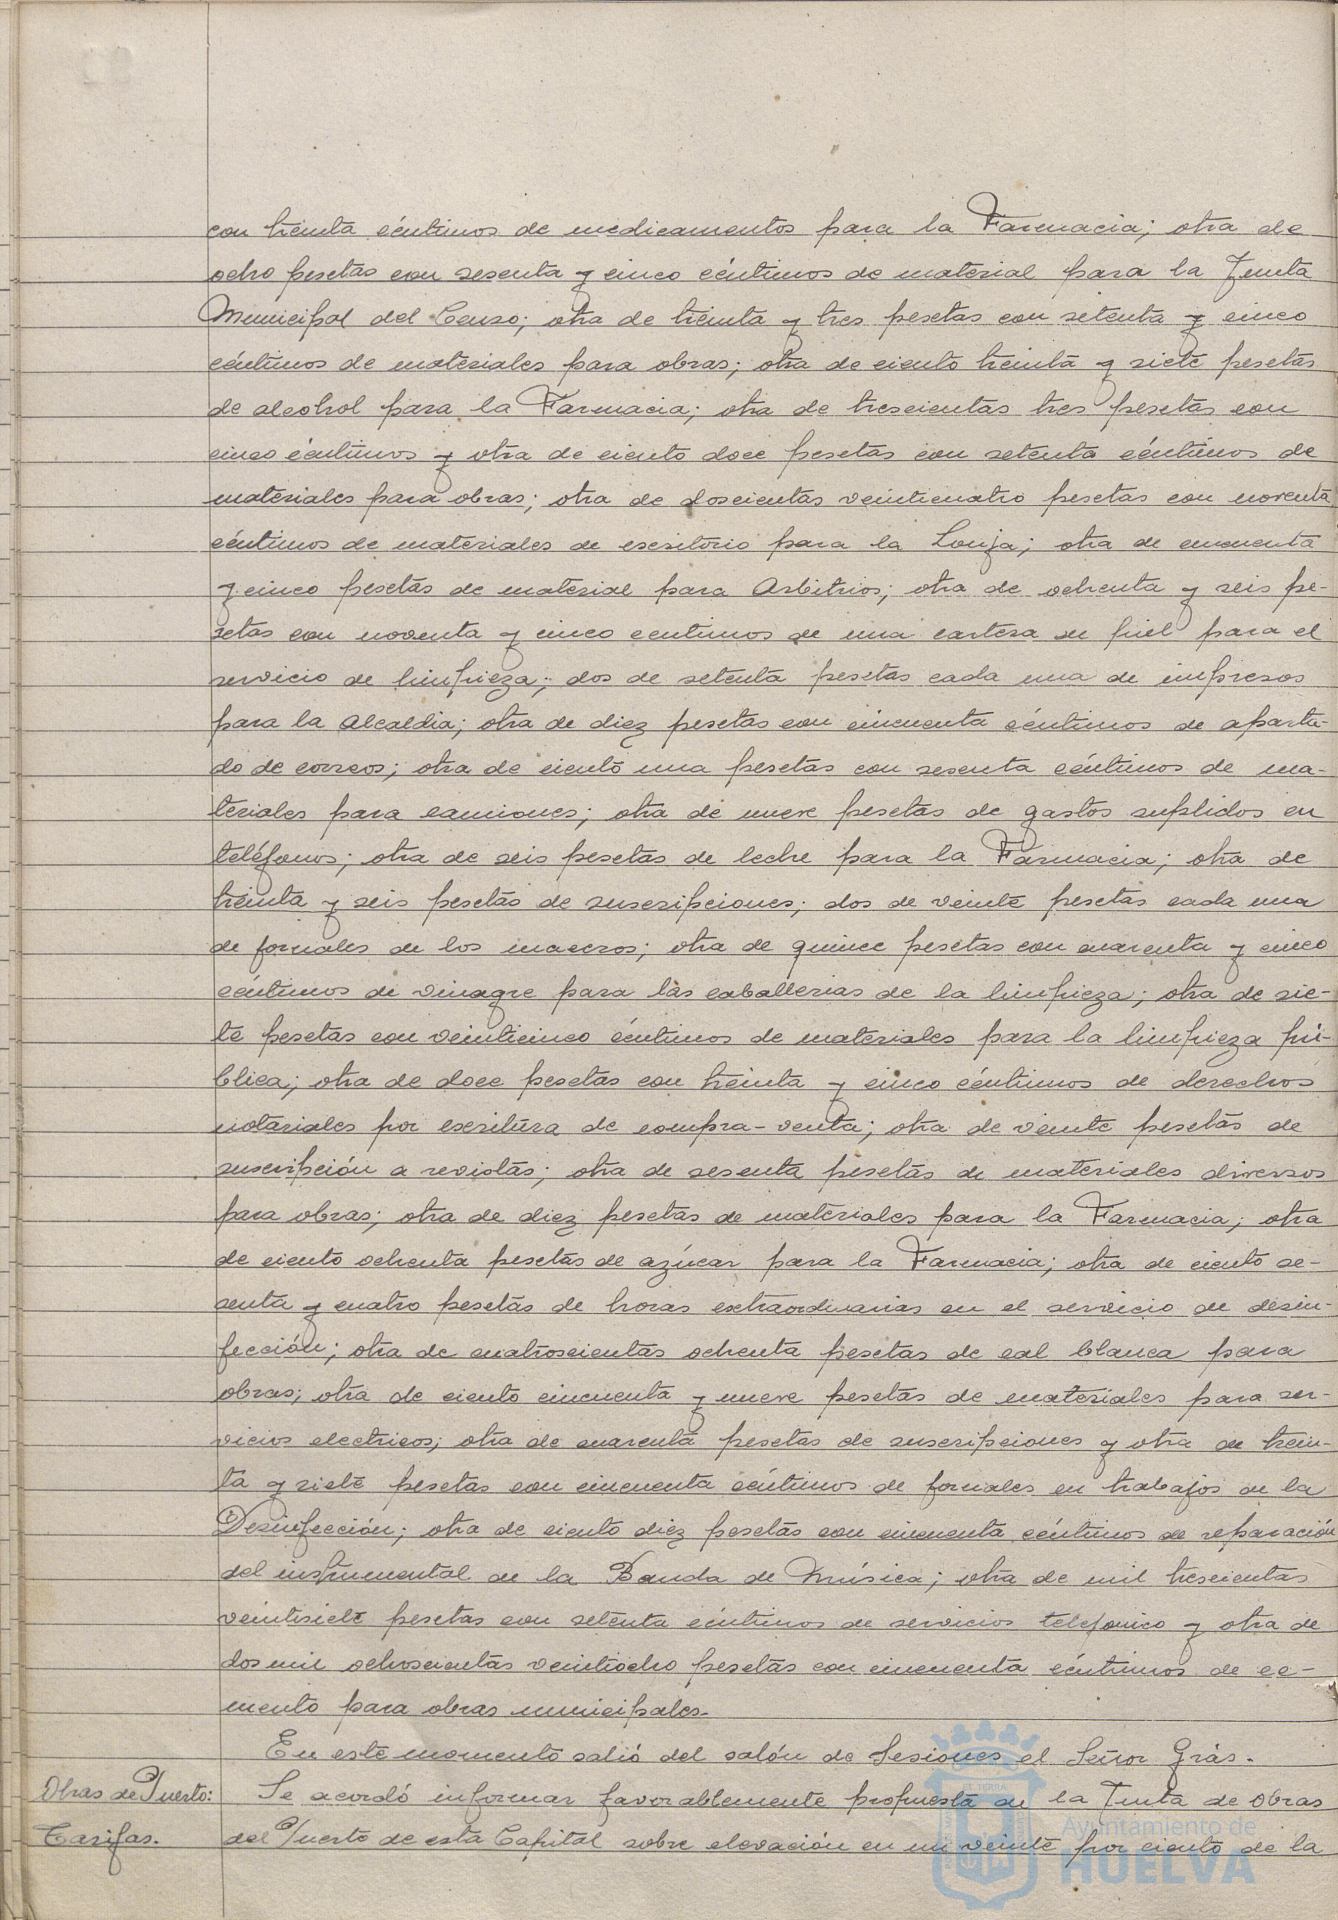 con treinta céntimos de medicamentos para la Farmacia; otra de
ocho pesetas con sesenta y cinco céntimos de material para la Junta
Municipal del Censo; otra de treinta y tres pesetas con setenta y cinco
céntimos de materiales para obras; otra de ciento treinta y siete pesetas
de alcohol para la Farmacia; otra de trescientas tres pesetas con
cinco céntimos y otra de ciento doce pesetas con setenta céntimos de
materiales para obras; otra de doscientas veinticuatro pesetas con noventa
céntimos de materiales de escritorio para la Lonja; otra de cincuenta
y cinco pesetas de material para Arbitrios; otra de ochenta y seis pe-
setas con noventa y cinco centimos de una cartera en piel para el
servicio de limpieza; dos de setenta pesetas cada una de impresos
para la Alcaldia; otra de diez pesetas con cincuenta céntimos de aparta-
do de correos; otra de ciento una pesetas con sesenta céntimos de ma-
teriales para camiones; otra de nueve pesetas de gastos suplidos en
teléfonos; otra de seis pesetas de leche para la Farmacia; otra de
treinta y seis pesetas de suscripciones; dos de veinte pesetas cada una
de jornales de los maceros; otra de quince pesetas con cuarenta y cinco
céntimos de vinagre para las caballerias de la limpieza; otra de sie-
te pesetas con veinticinco céntimos de materiales para la limpieza pú-
blica; otra de doce pesetas con treinta y cinco céntimos de derechos
notariales por escritura de compra-venta; otra de veinte pesetas de
suscripción a revistas; otra de sesenta pesetas de materiales diversos
para obras; otra de diez pesetas de materiales para la Farmacia; otra
de ciento ochenta pesetas de azúcar para la Farmacia; otra de ciento se-
senta y cuatro pesetas de horas extraordinarias en el servicio de desin-
fección; otra de cuatroscientas ochenta pesetas de cal blanca para
obras; otra de ciento cincuenta y nueve pesetas de materiales para ser-
vicios electricos; otra de cuarenta pesetas de suscripciones y otra de trein-
ta y siete pesetas con cincuenta céntimos de jornales en trabajos de la
Desinfección; otra de ciento diez pesetas con cincuenta céntimos de reparación
del instrumental de la Banda de Música; otra de mil trescientas
veintisiete pesetas con setenta céntimos de servicios telefonico y otra de
dos mil ochoscientas veintiocho pesetas con cincuenta céntimos de ce-
mento para obras municipales.
En este momento salió del salón de Sesiones el Señor Grás.
Obras de Puerto: Se acordó informar favorablemente propuesta de la Junta de Obras
Tarifas. del Puerto de esta Capital sobre elevación en un veinte por ciento de la
Ayuntamiento de
HUELVA